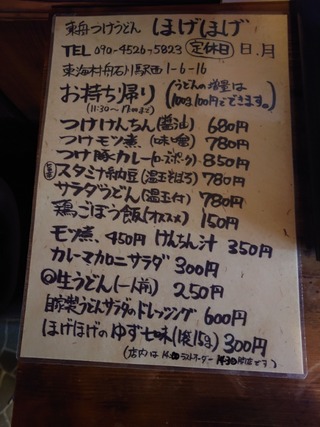 東舟つけうどん ほげほげ
TEL 090-4526-5823 定休日 日.月
東海村舟石川駅西1-6-16
お持ち帰り (うどんの増量は
(11:30〜17:00まで) 100g.100円でできます。)
つけけんちん(醤油) 680円
つけモツ煮.(味噌) 780円
つけ豚カレー(ローズポーク) 850円
スタミナ納豆(温玉そぼろ) 780円
サラダうどん(温玉付) 780円
鶏ごぼう飯(オススメ) 150円
モツ煮. 450円 けんちん汁 350円
カレーマカロニサラダ 300円
生うどん(一人前) 250円
自家製うどんサラダのドレッシング 600円
ほげほげのゆず七味(1袋15g) 300円
(店内は 14:00ラストオーダー 14:30閉店です)